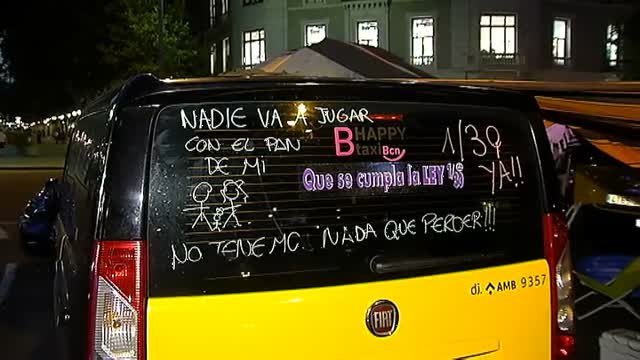 NADIE VA A JUGAR
CON EL PAN
DE MI
B HAPPY
taxi Bcn
1/30
YA!!
Que se cumpla la LEY 1/30
NO TENEMO NADA QUE PERDER!!!
FIAT
dj. AMB 9357